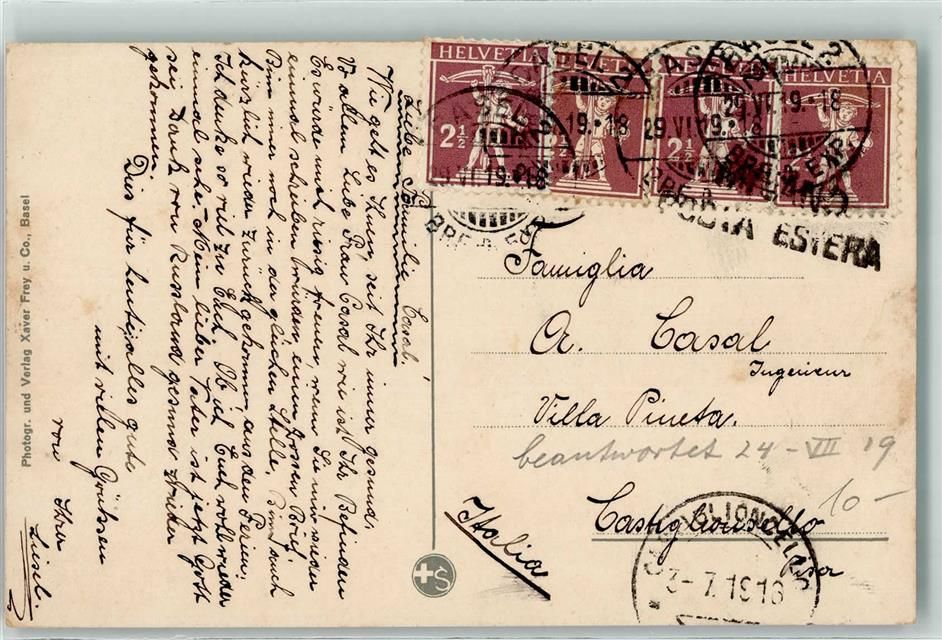 Liebe Familie Casal,
Wie geht es Ihnen, seit Ihr immer gesund,
Vor allem Liebe Frau Casal wie ist Ihr Befinden
Es würde mich riesig freuen, wenn Sie mir wieder
einmal schreiben würden, einen grossen Brief.
Bin immer noch in der gleichen Stelle, Bin auch
kürzlich wieder zurückgekommen aus den Ferien.
Ich denke so viel zu Euch, Ob ich Euch wohl wieder
einmal sehe. Mein lieber Vater ist jetzt Gott
sei Dank von Russland gesund wieder
gekommen.
Dies für heute, alles gute
mit vielen Grüssen
von Ihrer
Liesel.
Photogr. und Verlag Xaver Frey u. Co., Basel
HELVETIA
2½
HELVETIA
2½
HELVETIA
2½
HELVETIA
BASEL 2
29.VI.19.-18
POSTA ESTERA
Famiglia
A. Casal
Ingenieur
Villa Pineta.
beantwortet 24-VII 19
10-
Castiglioncello
Pisa
Italia
CASTIGLIONCELLO
3-7.1916